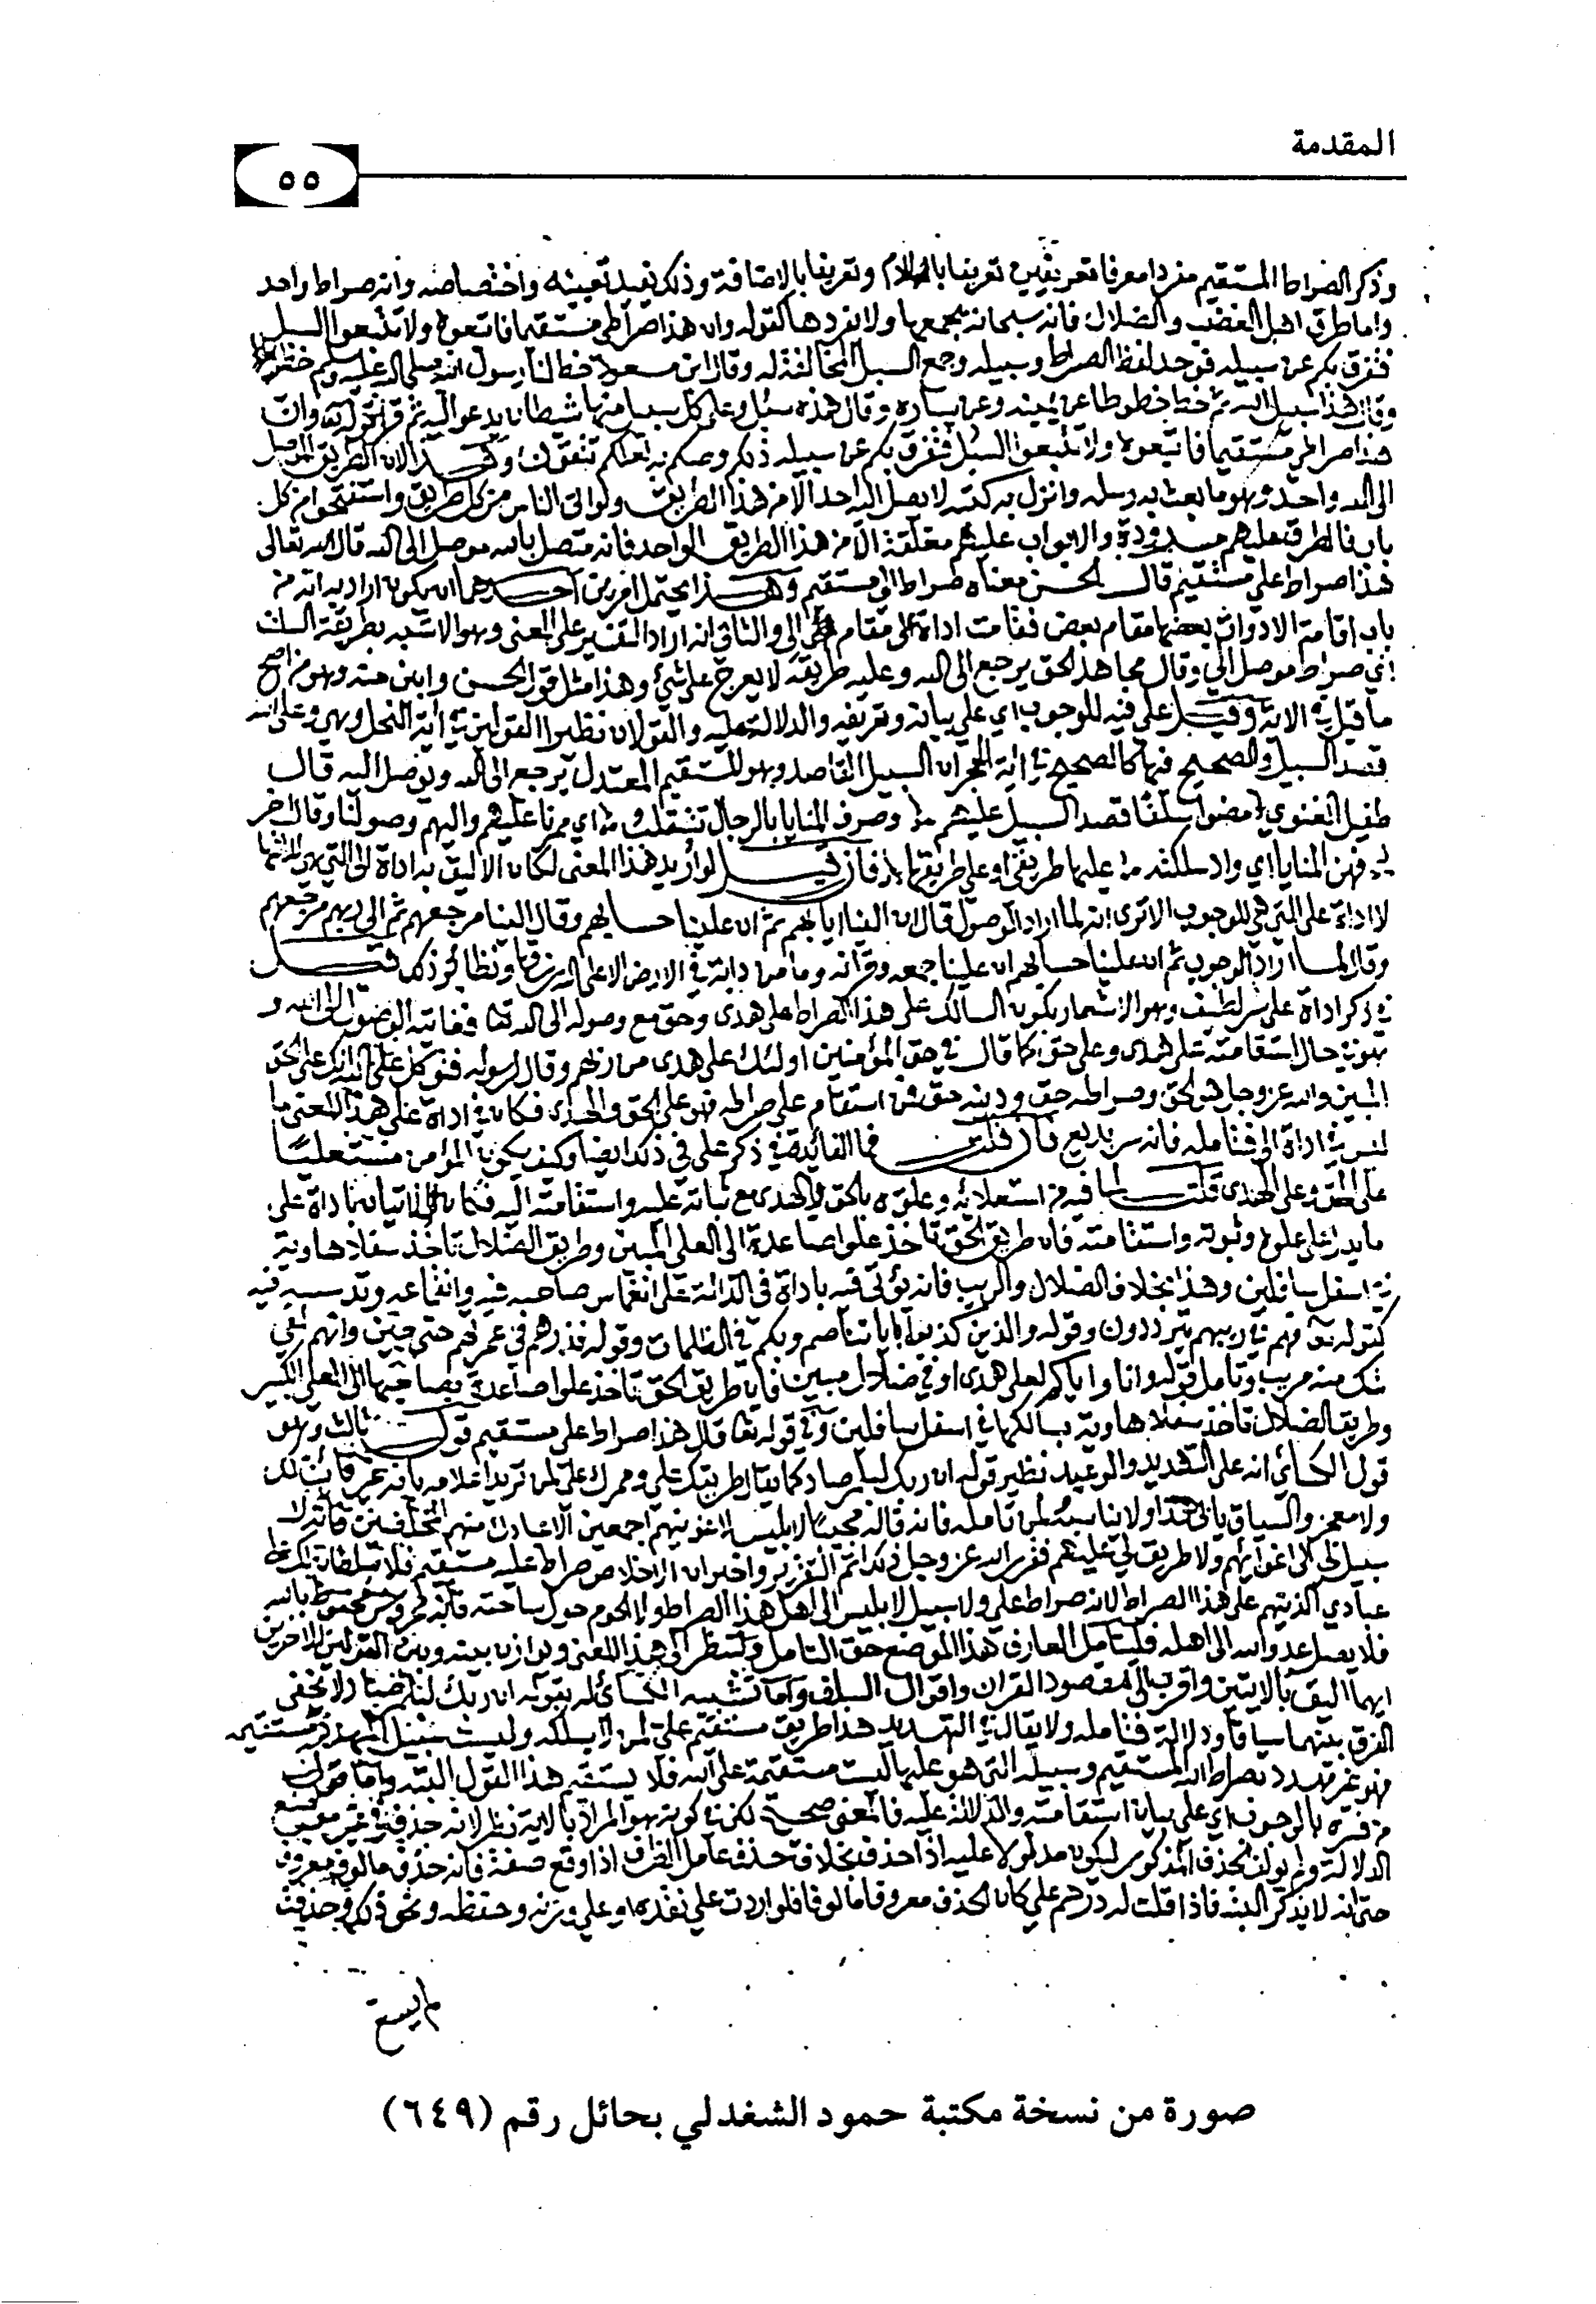 المقدمة
٥٥
وذكر الصراط المستقيم مفردا معرفا تعريفين تعريفا باللام وتعريفا بالاضافة وذلك يفيد تعيينه واختصاصه وانه صراط واحد
واما طرق اهل الغضب والضلال فانه سبحانه يجمعها ولا يفردها كقوله وان هذا صراطي مستقيما فاتبعوه ولا تتبعوا السبل
فتفرق بكم عن سبيله فوحد لفظ الصراط وسبيله وجمع السبل المخالفة له وقال ابن مسعود خط لنا رسول الله صلى الله عليه وسلم خطا
وقال هذا سبيل الله ثم خط خطوطا عن يمينه وعن يساره وقال هذه سبل وعلى كل سبيل منها شيطان يدعو اليه ثم قرا قوله وان
هذا صراطي مستقيما فاتبعوه ولا تتبعوا السبل فتفرق بكم عن سبيله ذلكم وصكم به لعلكم تتقون وهذا لان الطريق الموصل
الى الله واحد وهو ما بعث به رسله وانزل به كتبه لا يصل اليه احد الا من هذا الطريق ولو اتى الناس من كل طريق واستفتحوا من كل
باب فالطرق عليهم مسدودة والابواب عليهم مغلقة الا من هذا الطريق الواحد فانه متصل بالله موصل الى الله قال الله تعالى
هذا صراط علي مستقيم قال الحسن معناه صراط الي مستقيم وهذا يحتمل امرين احدهما ان يكون اراد به انه من
باب اقامة الادوات بعضها مقام بعض فقامت اداة على مقام الى والثاني انه اراد التفسير على المعنى وهو الاشبه بطريقة السلف
اي صراط موصل الي وقال مجاهد الحق يرجع الى الله وعليه طريقه لا يعرج على شيء وهذا مثل قول الحسن وابين منه وهو من اصح
ما قيل في الاية وقيل علي فيه للوجوب اي علي بيانه وتعريفه والدلالة عليه والقولان نظير القولين في اية النحل وهي وعلى الله
قصد السبيل والصحيح فيها كالصحيح في اية الحجر ان السبيل القاصد وهو المستقيم المعتدل يرجع الى الله ويوصل اليه قال
طفيل الغنوي مضوا سلفا قصد السبيل عليهم وصرف المنايا بالرجال تشقلب اي ممرنا عليهم واليهم وصولنا وقال اخر
فهن المنايا اي واد سلكته عليها طريقي او علي طريقها فان قيل لو اريد هذا المعنى لكان الاليق به اداة الى التي هي للانتها
لا اداة على التي هي للوجوب الا ترى انه لما اراد الوصول قال ان الينا ايابهم ثم ان علينا حسابهم وقال الينا مرجعهم ثم الى ربهم مرجعهم
وقال لما اراد الوجوب ثم ان علينا حسابهم ان علينا جمعه وقرانه وما من دابة في الارض الا على الله رزقها ونظائر ذلك قيل
في ذكر اداة على سر لطيف وهو الاشعار بكون السالك على هذا الصراط على هدى وحق مع وصوله الى الله فغايته الوصول الى الله و
هو في حال استقامته على هدى وعلى حق كما قال في حق المؤمنين اولئك على هدى من ربهم وقال لرسوله فتوكل على الله انك على الحق
المبين والله عز وجل هو الحق وصراطه حق ودينه حق فمن استقام على صراطه فهو على الحق والهدى فكان في اداة على هذا المعنى ما
ليس في اداة الى فتامله فانه سر بديع فان قلت فما الفائدة في ذكر على في ذلك ايضا وكيف يكون المؤمن مستعليا
على الحق وعلى الهدى قلت لما فيه من استعلائه وعلوه بالحق والهدى مع ثباته عليه واستقامته اليه فكان في الاتيان باداة على
ما يدل على علوه وثبوته واستقامته فان طريق الحق تاخذ علوا صاعدة الى العلي المبين وطريق الضلال تاخذ سفلا هاوية
في اسفل سافلين وهذا بخلاف الضلال والريب فانه يؤتى فيه باداة في الدالة على انغماس صاحبه فيه وانقماعه وتدسسه فيه
كقوله فهم في ريبهم يترددون وقوله والذين كذبوا باياتنا صم وبكم في الظلمات وقوله فذرهم في غمرتهم حتى حين وانهم لفي
شك منه مريب وتامل قوله وانا او اياكم لعلى هدى او في ضلال مبين فان طريق الحق تاخذ علوا صاعدة بصاحبها الى العلي الكبير
وطريق الضلال تاخذ سفلا هاوية بسالكها في اسفل سافلين وفي قوله قال هذا صراط علي مستقيم قول ثالث وهو
قول الكسائي انه على التهديد والوعيد نظير قوله ان ربك لبالمرصاد كما يقال طريقك علي وممرك علي لمن تريد اعلامه بانه غير فائت لك
ولا معجز والسياق يابى هذا ولا يناسبه لمن تامله فانه قاله مجيبا لابليس لاغوينهم اجمعين الا عبادك منهم المخلصين فانه لا
سبيل لي الى اغوائهم ولا طريق لي عليهم فقرر الله عز وجل ذلك اتم التقرير واخبر ان الاخلاص صراط عليه مستقيم فلا سلطان لك على
عبادي الذين هم على هذا الصراط لانه صراط علي ولا سبيل لابليس الى اهل هذا الصراط ولا الحوم حول ساحته فانه محروس محفوظ بالله
فلا يصل عدو الله الى اهله فليتامل العارف هذا الموضع حق التامل ولينظر الى هذا المعنى ويوازن بينه وبين القولين الاخرين
ايهما اليق بالايتين واقرب الى مقصود القران واقوال السلف واما تشبيه الكسائي له بقوله ان ربك لبالمرصاد لا يخفى
الفرق بينهما سياقا ودلالة فتامله ولا يقال في التهديد هذا طريق مستقيم علي لمن لا يسلكه وليست سبيل المهدد مستقيمة
فهو غير مهدد بصراط الله المستقيم وسبيله التي هو عليها ليست مستقيمة على الله فلا يستقيم هذا القول البتة واما قول
من فسره بالوجوب اي علي بيان استقامته والدلالة عليه فالمعنى صحيح لكن في كونه هو المراد بالاية نظر لانه حذف في غير موضع
الدلالة ولم يؤلف الحذف المذكور ليكون مدلولا عليه اذا حذف بخلاف حذف عامل الظرف اذا وقع صفة فانه حذف مالوف معروف
حتى انه لا يذكر البتة فاذا قلت له درهم علي كان الحذف معروفا مالوفا فلو اردت علي نقده او علي وزنه وحفظه ونحو ذلك وحذفت
لم يسغ
صورة من نسخة مكتبة حمود الشغدلي بحائل رقم (٦٤٩)